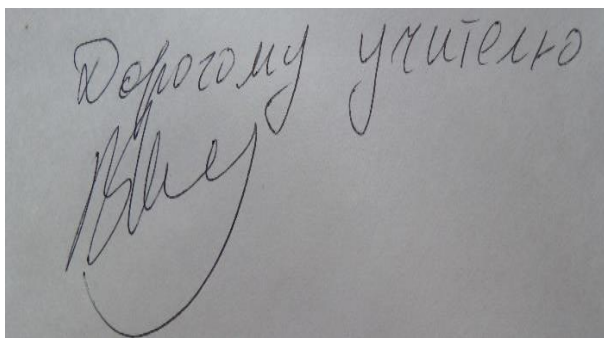 Дорогому учителю